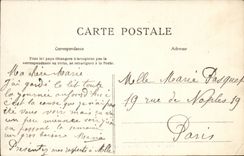 CARTE POSTALE
Correspondance
Adresse
Tous les pays étrangers n'acceptent pas
la correspondance au recto, se renseigner à la Poste.
Ma chère Marie
J'ai gardé le lit toute
la journée aujourd'hui
c'est la cause que je n'ai pas
été vous voir. Je suis un
peu
en passant le
gros Marie
Présentez mes respects à Melle
Melle Marie
19 rue de Naples 19
Paris